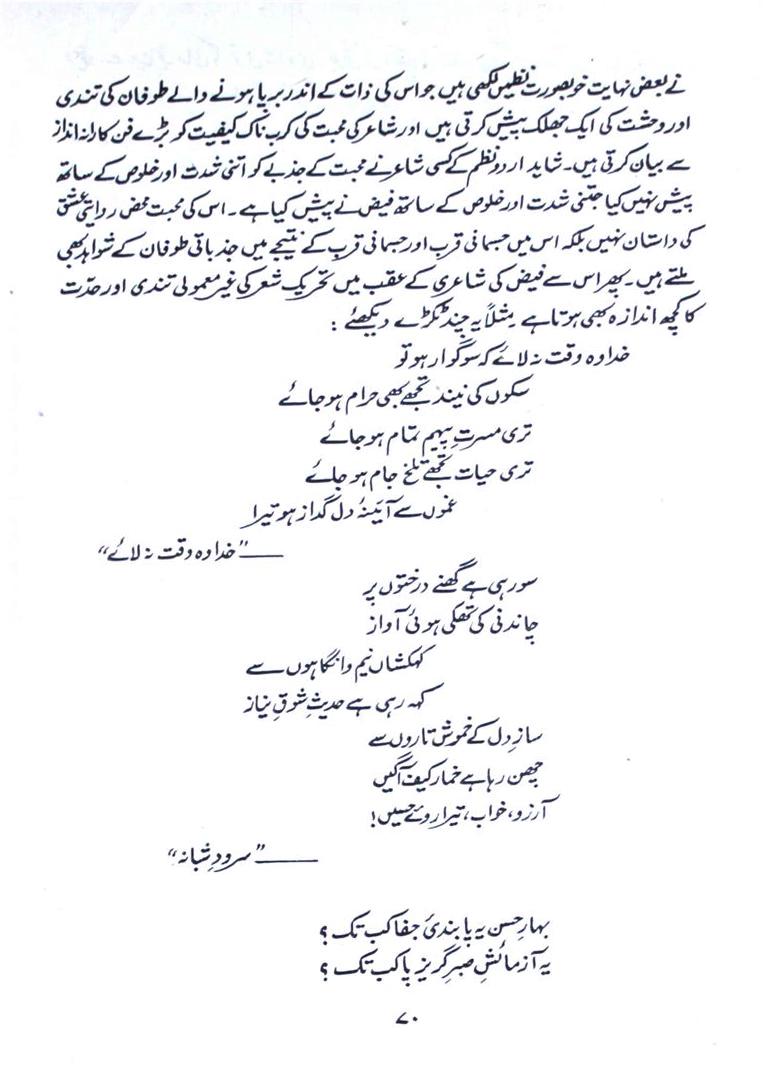 نے بعض نہایت خوبصورت نظمیں لکھی ہیں جو اس کی ذات کے اندر برپا ہونے والے طوفان کی تندی
اور وحشت کی ایک جھلک پیش کرتی ہیں اور شاعر کی محبت کی کرب ناک کیفیت کو بڑے فن کارانہ انداز
سے بیان کرتی ہیں۔ شاید اردو نظم کے کسی شاعر نے محبت کے جذبے کو اتنی شدت اور خلوص کے ساتھ
پیش نہیں کیا جتنی شدت اور خلوص کے ساتھ فیض نے پیش کیا ہے۔ اس کی محبت محض روایتی عشق
کی داستان نہیں بلکہ اس میں جسمانی قرب اور جسمانی قرب کے نتیجے میں جذباتی طوفان کے شواہد بھی
ملتے ہیں۔ پھر اس سے فیض کی شاعری کے عقب میں تحریک شعر کی غیر معمولی تندی اور حدّت
کا کچھ اندازہ بھی ہوتا ہے مثلاً یہ چند ٹکڑے دیکھئے :
خدا وہ وقت نہ لائے کہ سوگوار ہو تو
سکوں کی نیند تجھے بھی حرام ہو جائے
تری مسرتِ پیہم تمام ہو جائے
تری حیات تجھے تلخ جام ہو جائے
غموں سے آئینۂ دل گداز ہو تیرا
——”خدا وہ وقت نہ لائے“
سو رہی ہے گھنے درختوں پر
چاندنی کی تھکی ہوئی آواز
کہکشاں نیم وا نگاہوں سے
کہہ رہی ہے حدیثِ شوقِ نیاز
سازِ دل کے خموش تاروں سے
چھن رہا ہے خمار کیف آگیں
آرزو، خواب، تیرا روئے حسیں!
——”سرودِ شبانہ“
بہارِ حسن پہ پابندیٔ جفا کب تک ؟
یہ آزمائشِ صبرِ گریز پا کب تک ؟
۷۰